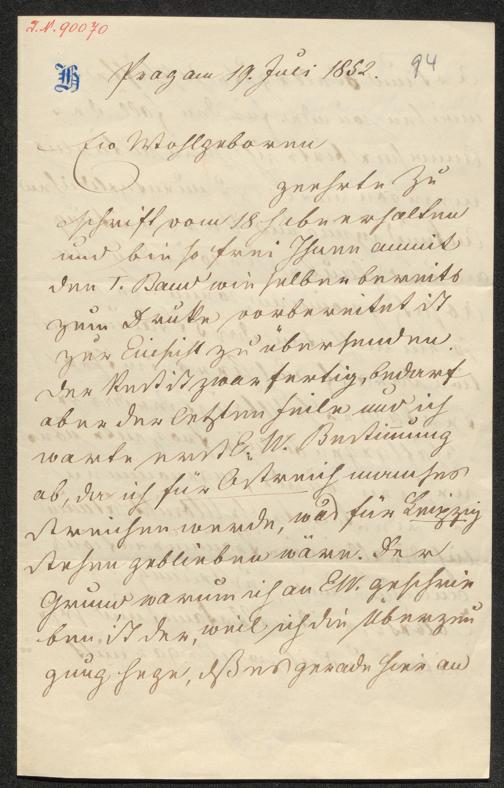 I.N. 90070
94
H
Prag am 19. Juli 1852.
Euo Wohlgeboren
geehrte Zu
schrift vom 18. habe erhalten
und bin so frei Ihnen anmit
den I. Band wie selber bereits
zum Druke vorbereitet ist
zur Einsicht zu übersenden.
Der Rest ist zwar fertig, bedarf
aber der letzten Feile und ich
warte erst E. W. Bestimmung
ab, da ich für Östreich manches
streichen werde, was für Leipzig
stehen geblieben wäre. Der
Grund warum ich an EW. geschrie
ben, ist der, weil ich die Überzeu
gung hege, dß es gerade hier an